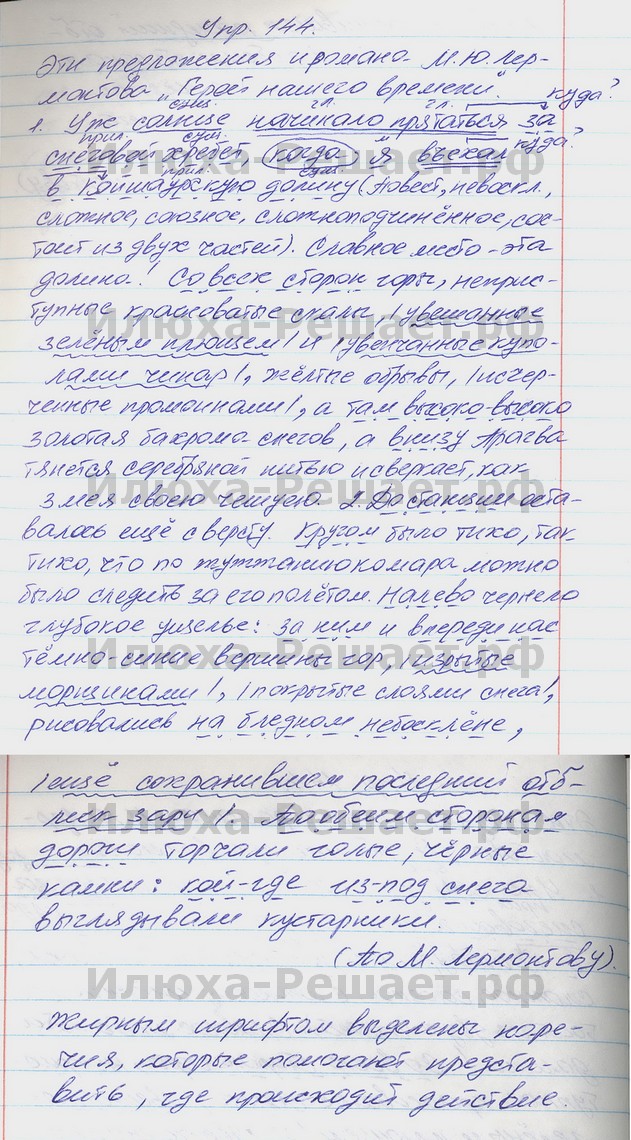 Упр. 144.
Эти предложения и романа М.Ю.Лер-
монтова „Герой нашего времени".
сущ. гл. гл. куда?
1. Уже солнце начинало прятаться за
прил. сущ. куда?
снеговой хребет, когда я въехал
прил. сущ.
в Койшаурскую долину (Повест., невоскл.,
сложное, союзное, сложноподчинённое, сос-
тоит из двух частей). Славное место - эта
долина! Со всех сторон горы, неприс-
тупные красноватые скалы, | увешанные
Илюха-Решает.рф
зелёным плющем | и | увенчанные купо-
лами чинар |, жёлтые обрывы, | исчер-
ченные промоинами |, а там высоко-высоко
золотая бахрома снегов, а внизу Арагва
тянется серебряной нитью и сверкает, как
Илюха-Решает.рф
змея своею чешуею. 2. До станции оста-
валось ещё с версту. Кругом было тихо, так
тихо, что по жужжанию комара можно
было следить за его полётом. Налево чернело
глубокое ущелье: за ним и впереди нас
Илюха-Решает.рф
тёмно-синие вершины гор, | изрытые
морщинами |, | покрытые слоями снега |,
рисовались на бледном небосклоне,
| ещё сохранившем последний отб-
леск зари |. По обеим сторонам
Илюха-Решает.рф
дороги торчали голые, чёрные
камни: кой-где из-под снега
выглядывали кустарники.
(По М. Лермонтову).
Илюха-Решает.рф
Жирным шрифтом выделены наре-
чия, которые помогают предста-
вить, где происходит действие.